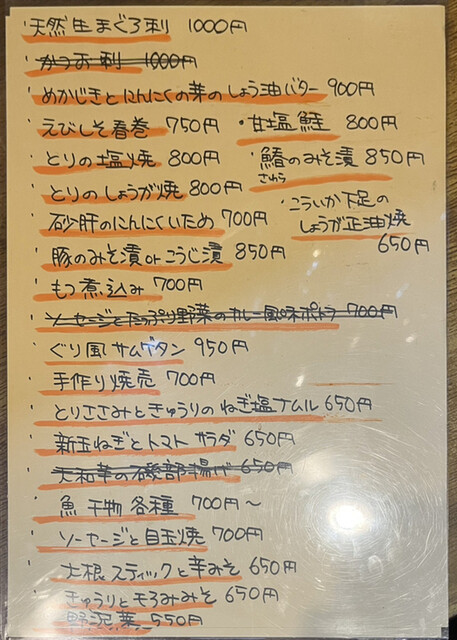 ・天然生まぐろ刺 1000円
・かつお刺 1000円
・めかじきとにんにくの芽のしょう油バター 900円
・えびしそ春巻 750円
・甘塩鮭 800円
・とりの塩焼 800円
・鰆のみそ漬 850円
さわら
・とりのしょうが焼 800円
・こういか下足の
しょうが正油焼
650円
・砂肝のにんにくいため 700円
・豚のみそ漬orこうじ漬 850円
・もつ煮込み 700円
・ソーセージとたっぷり野菜のカレー風味ポトフ 700円
・ぐり風サムゲタン 950円
・手作り焼売 700円
・とりささみときゅうりのねぎ塩ナムル 650円
・新玉ねぎとトマトサラダ 650円
・大和芋の磯部揚げ 650円
・魚干物各種 700円〜
・ソーセージと目玉焼 700円
・大根スティックと辛みそ 650円
・きゅうりともろみみそ 650円
・野沢菜 550円